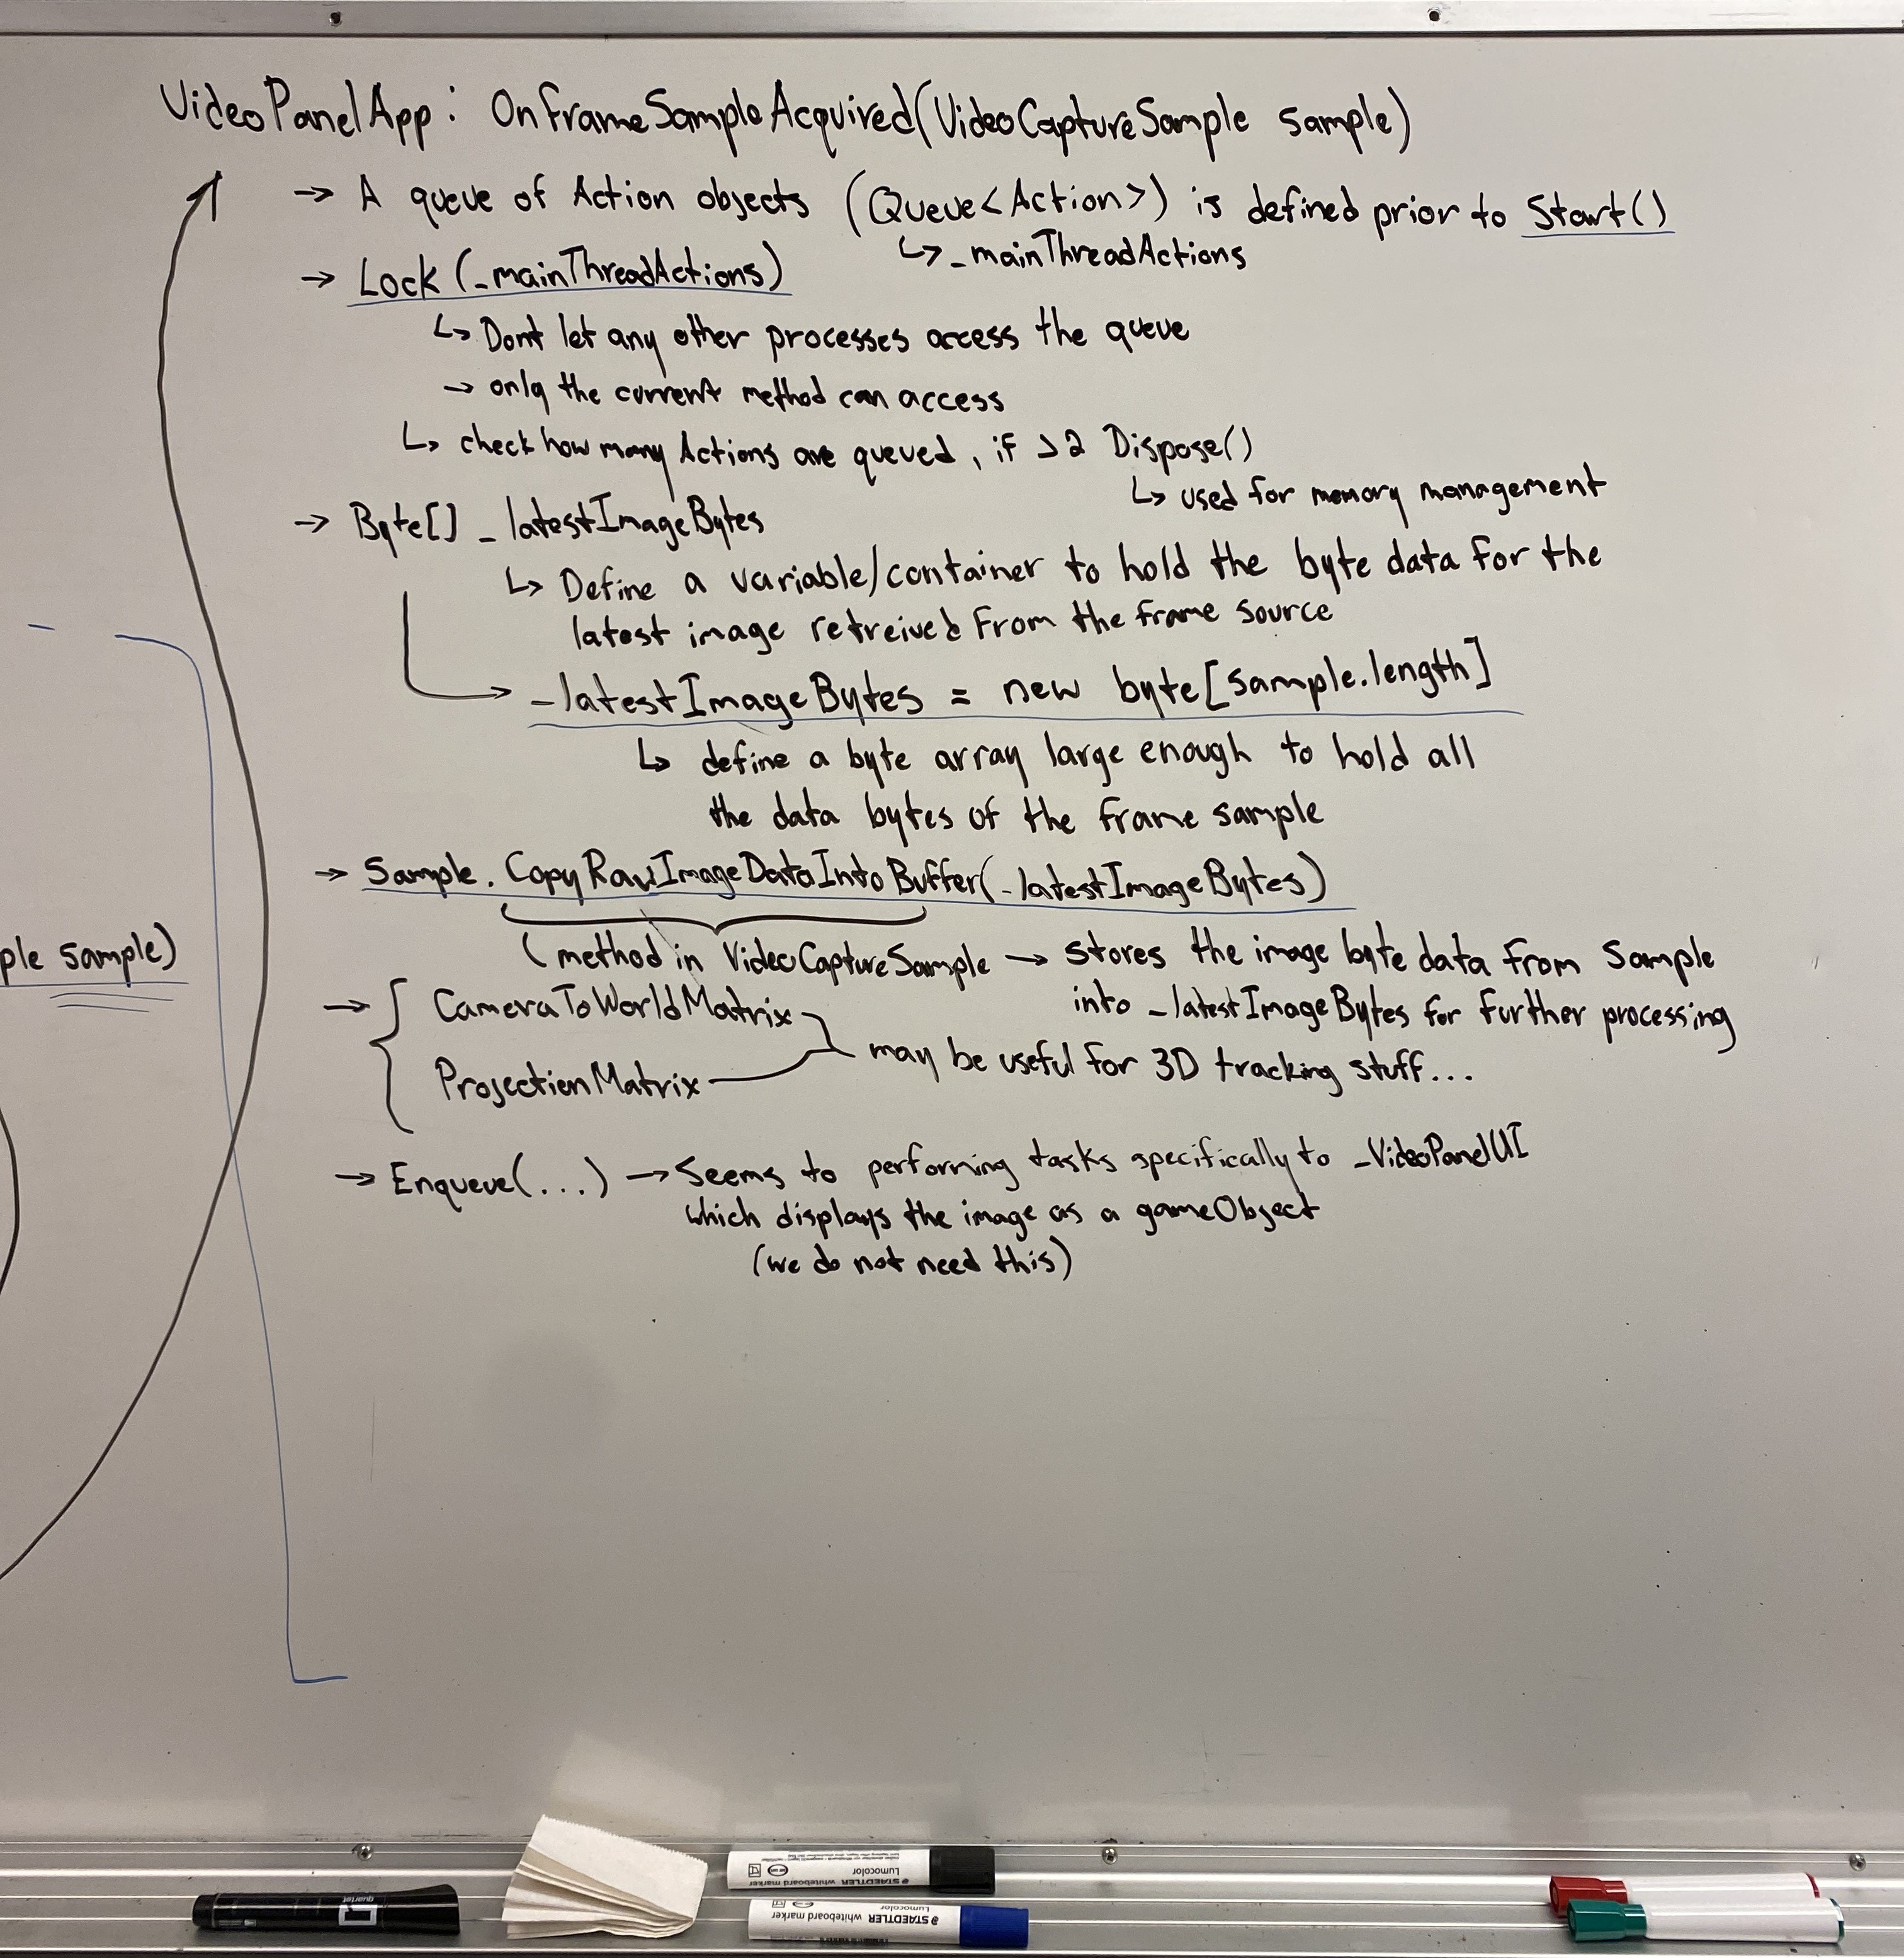 VideoPanelApp: OnFrameSampleAcquired(VideoCaptureSample sample)
→ A queue of Action objects (Queue<Action>) is defined prior to Start()
↳ _mainThreadActions
→ Lock (_mainThreadActions)
↳ Dont let any other processes access the queue
→ only the current method can access
↳ check how many Actions are queued, if >2 Dispose()
↳ used for memory management
→ Byte[] _latestImageBytes
↳ Define a variable/container to hold the byte data for the
latest image retreived from the frame source
→ _latestImageBytes = new byte[sample.length]
↳ define a byte array large enough to hold all
the data bytes of the frame sample
→ Sample.CopyRawImageDataIntoBuffer(_latestImageBytes)
(method in VideoCaptureSample → stores the image byte data from sample
into _latestImageBytes for further processing
ple sample)
→ { CameraToWorldMatrix
ProjectionMatrix
may be useful for 3D tracking stuff...
→ Enqueue(...) → Seems to performing tasks specifically to _VideoPanelUI
which displays the image as a gameObject
(we do not need this)
quartet
Lumocolor
STAEDTLER whiteboard marker
Lumocolor
STAEDTLER whiteboard marker